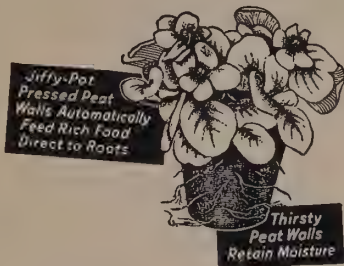 Jiffy-Pot
Pressed Peat
Walls Automatically
Feed Rich Food
Direct to Roots
Thirsty
Peat Walls
Retain Moisture